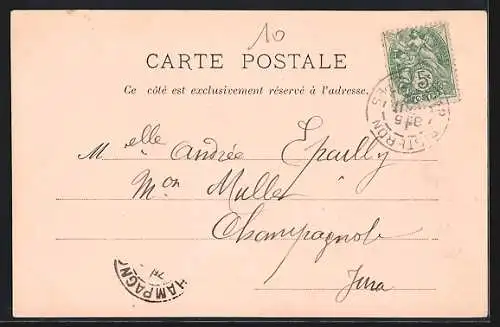 10
CARTE POSTALE
Ce côté est exclusivement réservé à l'adresse.
Melle Andrée Epailly
Mon Muller
Champagnole
Jura
5
HAMPAGN